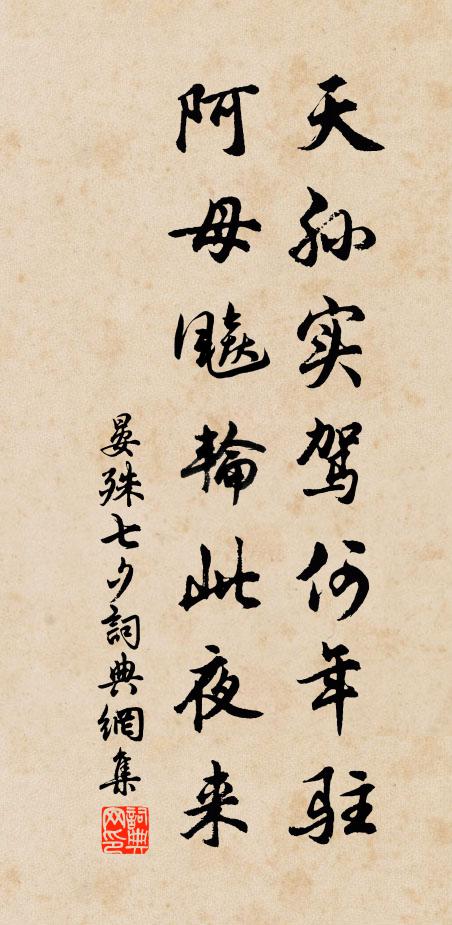 天孙实驾何年驻
阿母飚輪此夜来
晏殊七夕詞典網集
詞典网印